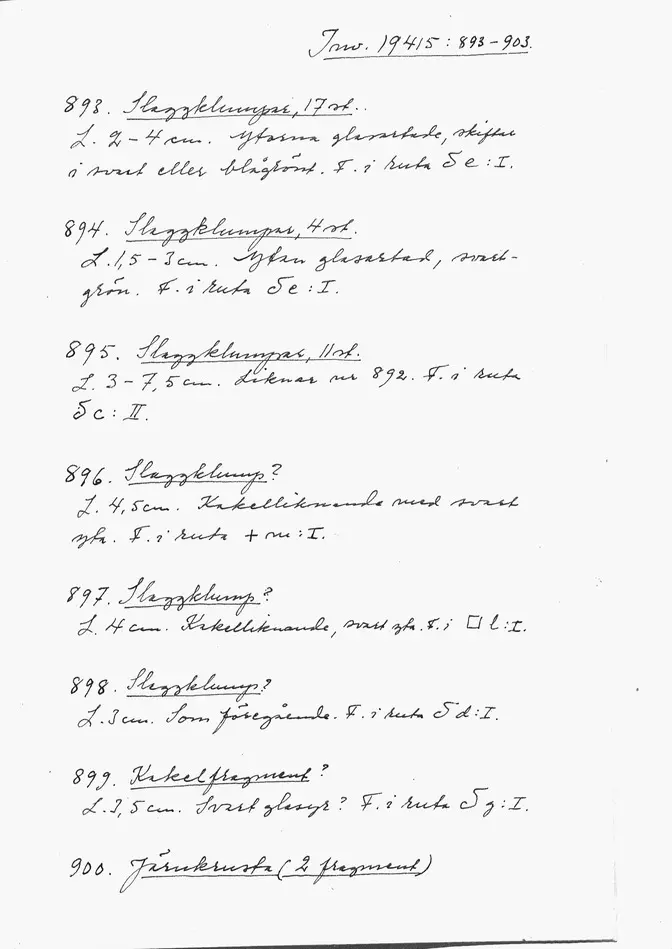 Inv. 19415: 893-903.
893. Slaggklumpar, 17 st.
L. 2-4 cm. Ytorna glasartade, skiftar
i svart eller blågrönt. F. i ruta δ e: I.
894. Slaggklumpar, 4 st.
L. 1,5-3 cm. Ytan glasartad, svart-
grön. F. i ruta δ e: I.
895. Slaggklumpar, 11 st.
L. 3-7,5 cm. Liknar nr 892. F. i ruta
δ c: II.
896. Slaggklump?
L. 4,5 cm. Kakelliknande med svart
yta. F. i ruta + m: I.
897. Slaggklump?
L. 4 cm. Kakelliknande, svart yta. F. i □ l: I.
898. Slaggklump?
L. 3 cm. Som föregående. F. i ruta δ d: I.
899. Kakelfragment?
L. 3,5 cm. Svart glasyr? F. i ruta δ g: I.
900. Järnkrusta (2 fragment)